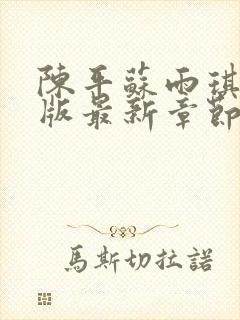 陳平蘇雨琪
版最新章節
馬斯切拉諾